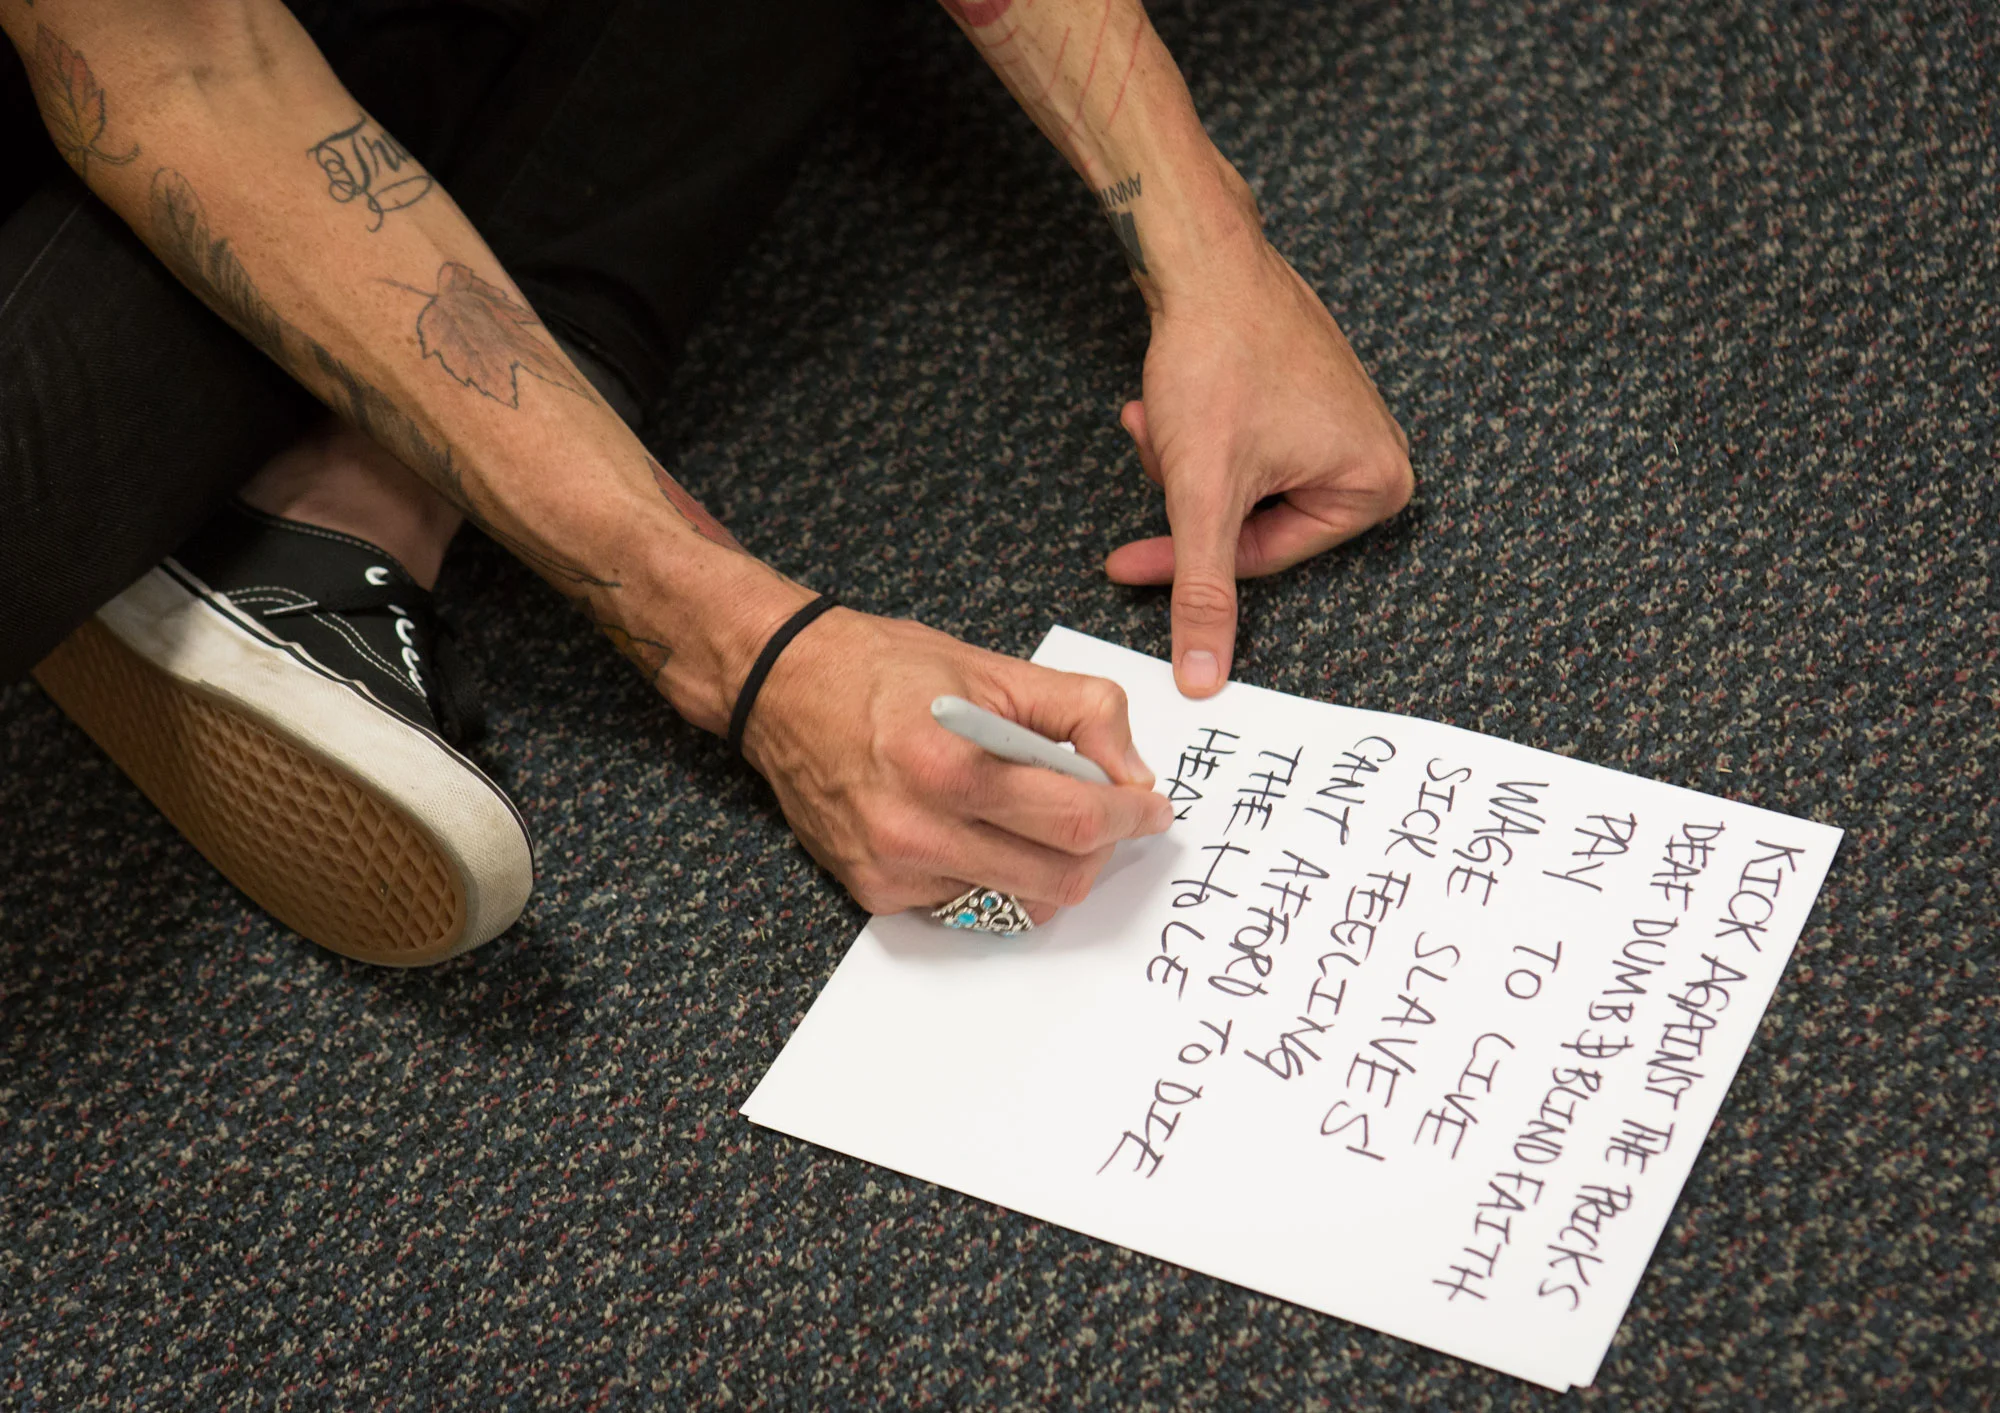 KICK AGAINST THE PRICKS
DEAF DUMB & BLIND FAITH
PAY TO LIVE
WAGE SLAVES
SICK FEELING
CANT AFFORD TO DIE
THE HOLE